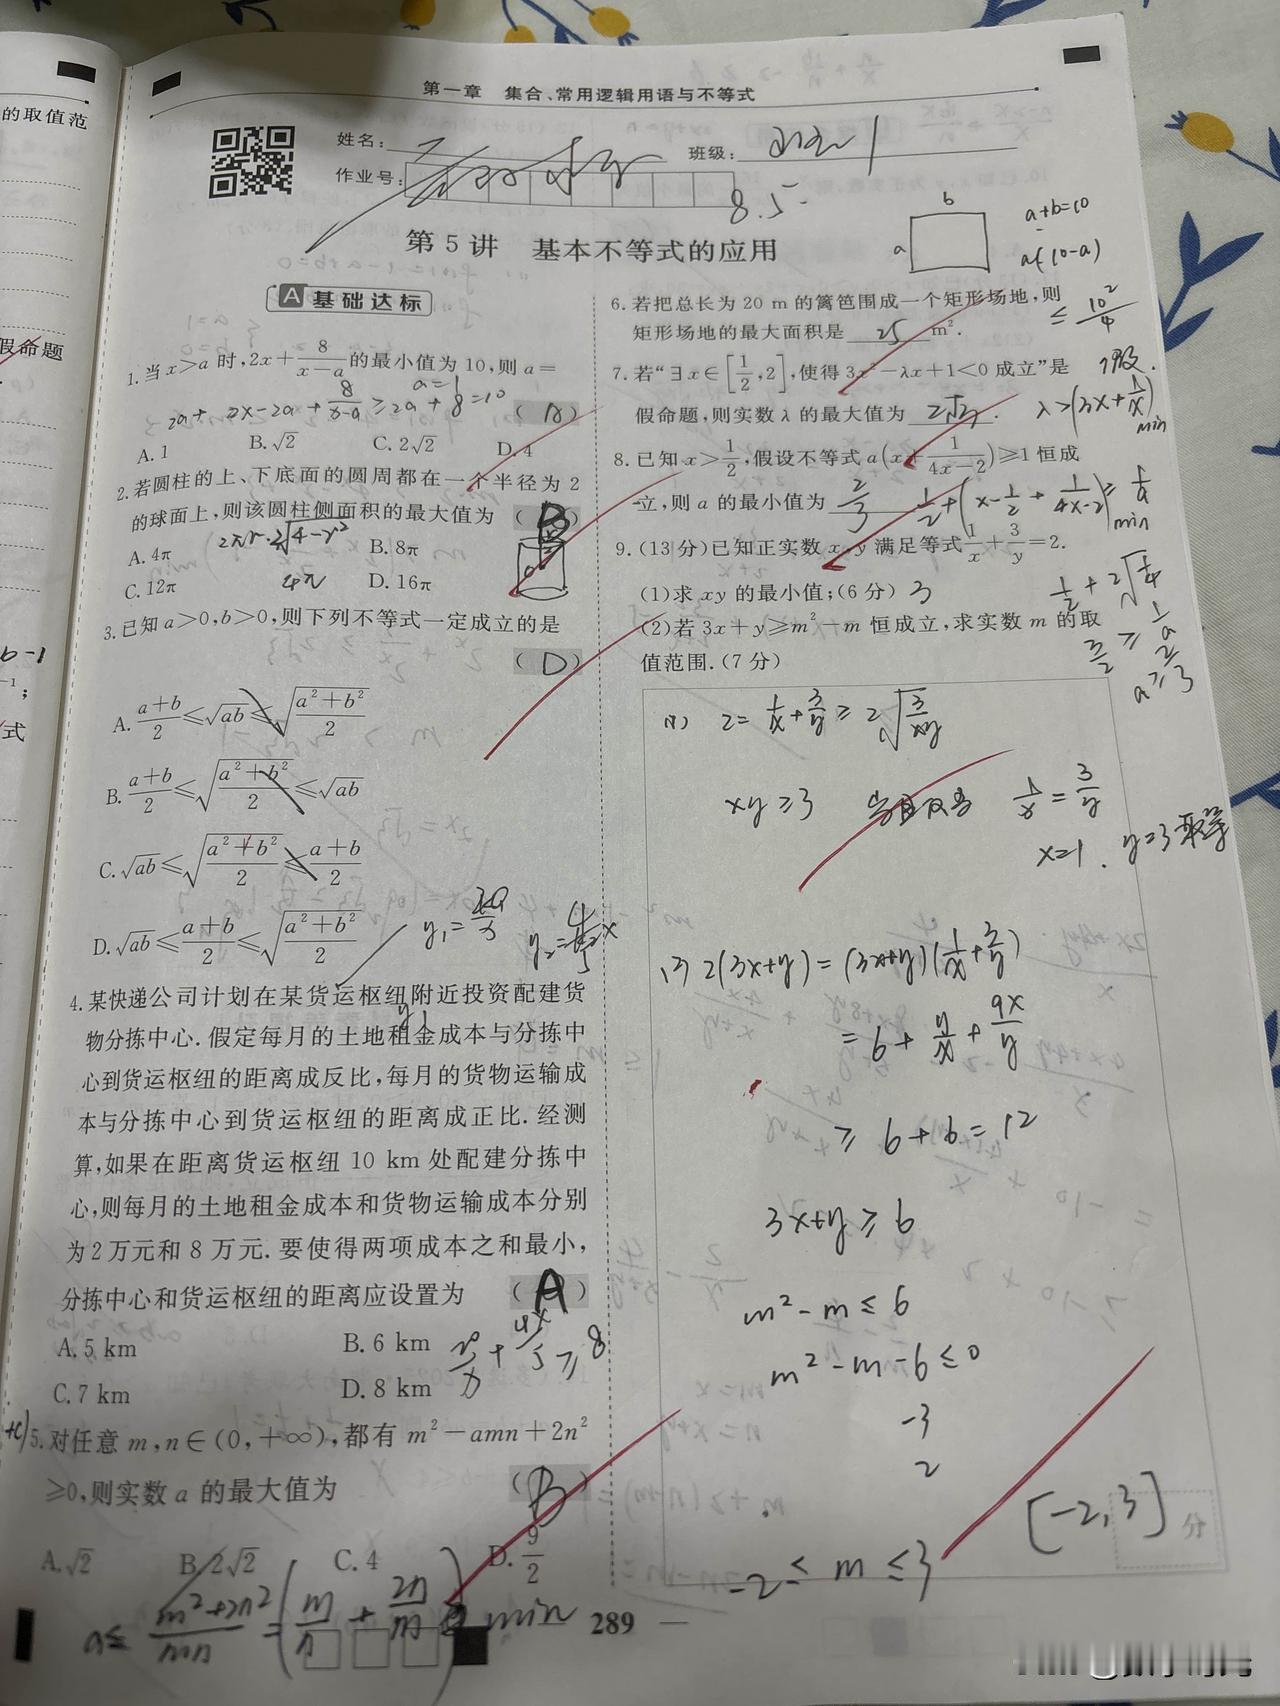 的取值范
假命题
b-1
式
第一章 集合、常用逻辑用语与不等式
姓名:
班级:
作业号:
8.5
第5讲 基本不等式的应用
A 基础达标
1.当x>a时,2x+8/(x-a)的最小值为10,则a=
a=1
2a+2x-2a+8/(x-a)≥2a+8=10
(A)
A.1 B.√2 C.2√2 D.4
2.若圆柱的上、下底面的圆周都在一个半径为2
的球面上,则该圆柱侧面积的最大值为 (B)
2πr·2√(4-r²)
A.4π B.8π
4π
C.12π D.16π
3.已知a>0,b>0,则下列不等式一定成立的是
(D)
A.(a+b)/2≤√ab≤√((a²+b²)/2)
B.(a+b)/2≤√((a²+b²)/2)≤√ab
C.√ab≤√((a²+b²)/2)≤(a+b)/2
D.√ab≤(a+b)/2≤√((a²+b²)/2)
4.某快递公司计划在某货运枢纽附近投资配建货
物分拣中心.假定每月的土地租金成本与分拣中
心到货运枢纽的距离成反比,每月的货物运输成
本与分拣中心到货运枢纽的距离成正比.经测
算,如果在距离货运枢纽10 km处配建分拣中
心,则每月的土地租金成本和货物运输成本分别
为2万元和8万元.要使得两项成本之和最小,
分拣中心和货运枢纽的距离应设置为 (A)
A.5 km B.6 km
C.7 km D.8 km
20/x+4x/5≥8
5.对任意m,n∈(0,+∞),都有m²-amn+2n²
≥0,则实数a的最大值为 (B)
A.√2 B.2√2 C.4 D.9/2
a≤(m²+2n²)/mn=(m/n+2n/m)min
b
a
a+b=10
a(10-a)
≤10²/4
6.若把总长为20 m的篱笆围成一个矩形场地,则
矩形场地的最大面积是 25 m².
7.若“∃x∈[1/2,2],使得3x²-λx+1<0成立”是
假命题,则实数λ的最大值为 2√3 .
λ>(3x+1/x)min
8.已知x>1/2,假设不等式a(x+1/(4x-2))≥1恒成
立,则a的最小值为 2/3
1/2+(x-1/2+1/(4x-2))min≥1/a
1/2+2√(1/4)
3/2≥1/a
a≥2/3
9.(13分)已知正实数x,y满足等式1/x+3/y=2.
(1)求xy的最小值;(6分) 3
(2)若3x+y≥m²-m恒成立,求实数m的取
值范围.(7分)
(1) 2=1/x+3/y≥2√(3/xy)
xy≥3 当且仅当 1/x=3/y
x=1.y=3取等
(2) 2(3x+y)=(3x+y)(1/x+3/y)
=6+y/x+9x/y
≥6+6=12
3x+y≥6
m²-m≤6
m²-m-6≤0
-3
2
-2≤m≤3
[-2,3]
分
289